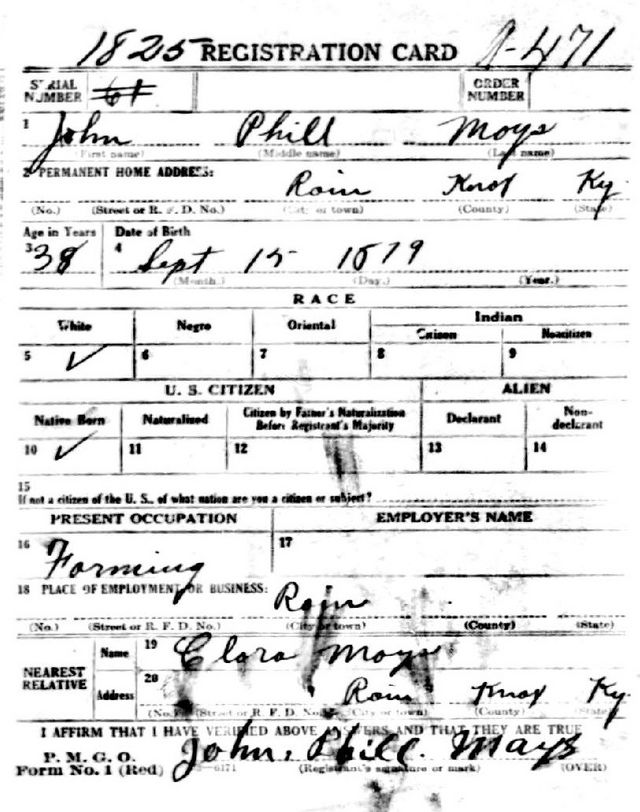 1825 REGISTRATION CARD A-471
SERIAL NUMBER 61 ORDER NUMBER
1 John Phill Mays
(First name) (Middle name) (Last name)
2 PERMANENT HOME ADDRESS:
Rain Knox Ky
(No.) (Street or R. F. D. No.) (City or town) (County) (State)
Age in Years Date of Birth
3 38 4 Sept 15 1879
(Month.) (Day.) (Year.)
RACE
White Negro Oriental Indian
Citizen Noncitizen
5 ✓ 6 7 8 9
U. S. CITIZEN ALIEN
Native Born Naturalized Citizen by Father's Naturalization Before Registrant's Majority Declarant Non-declarant
10 ✓ 11 12 13 14
15
If not a citizen of the U. S., of what nation are you a citizen or subject?
PRESENT OCCUPATION EMPLOYER'S NAME
16 Farming 17
18 PLACE OF EMPLOYMENT OR BUSINESS:
Rain
(No.) (Street or R. F. D. No.) (City or town) (County) (State)
NEAREST RELATIVE
Name 19 Clara Mays
Address 20 Rain Knox Ky
(No.) (Street or R. F. D. No.) (City or town) (County) (State)
I AFFIRM THAT I HAVE VERIFIED ABOVE ANSWERS AND THAT THEY ARE TRUE
P. M. G. O.
Form No. 1 (Red) John. Phill. Mays
3—6171 (Registrant's signature or mark) (OVER)